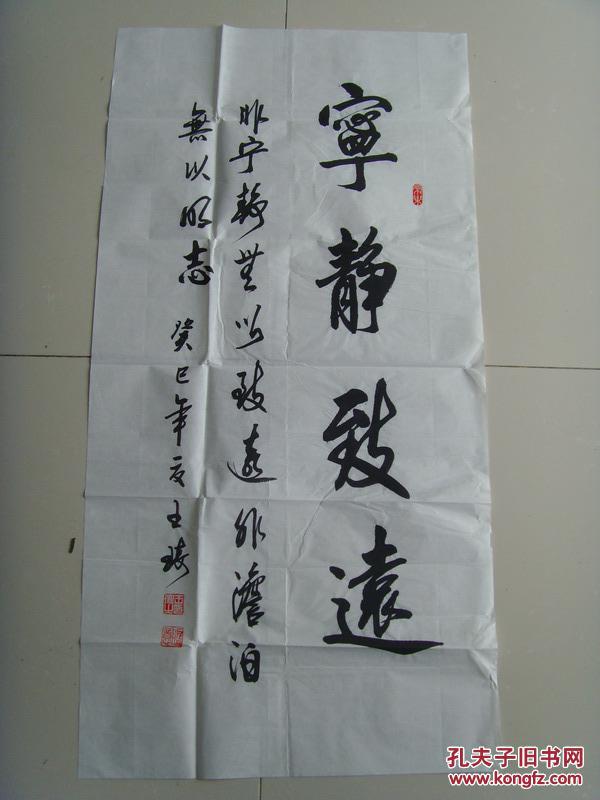 寧靜致遠
非宁静無以致遠非澹泊
無以明志 癸巳年夏王琦
孔夫子旧书网
www.kongfz.com